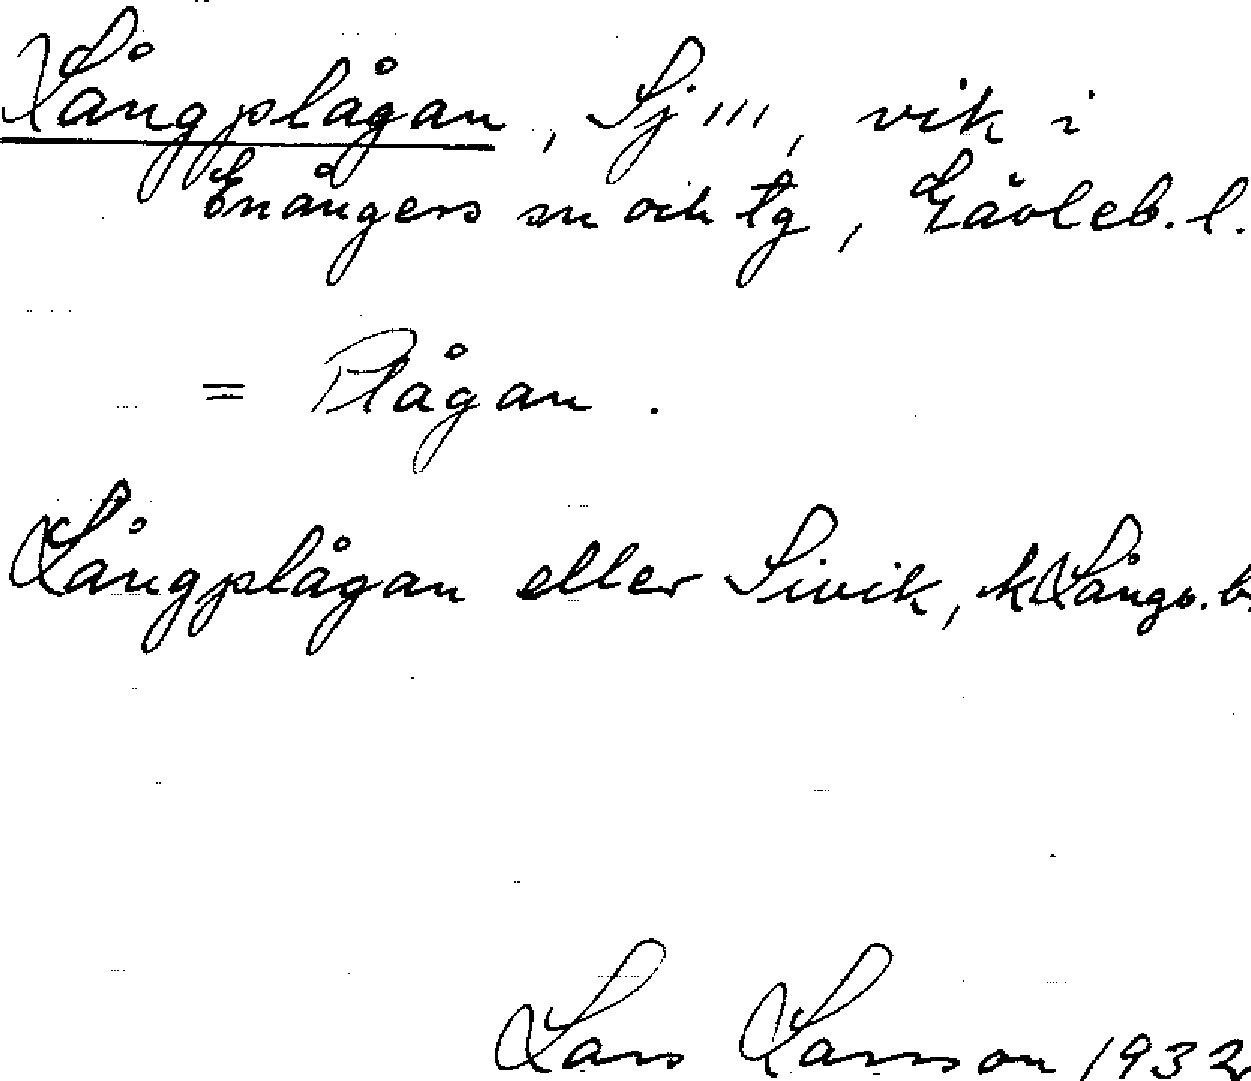 Långplågan, Sj''', vik i
Enångers sn och tg, Gävleb. l.
= Plågan.
Långplågan eller Sivik, kLångv. b.
Lars Larsson 1932